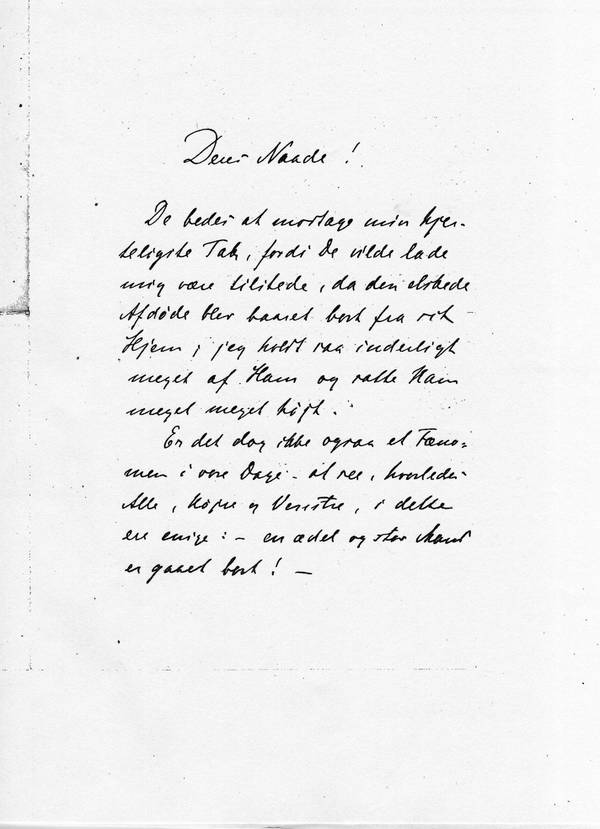 Deres Naade!
De bedes at modtage min hjer-
teligste Tak, fordi De vilde lade
mig være tilstede, da den elskede
Afdøde blev baaret bort fra sit
Hjem; jeg holdt saa inderligt
meget af Ham og satte Ham
meget meget højt.
Er det dog ikke ogsaa et Fæno-
men i vore Dage - at see, hvorledes
Alle, Højre og Venstre, i dette
ere enige: - en ædel og stor Mand
er gaaet bort! -